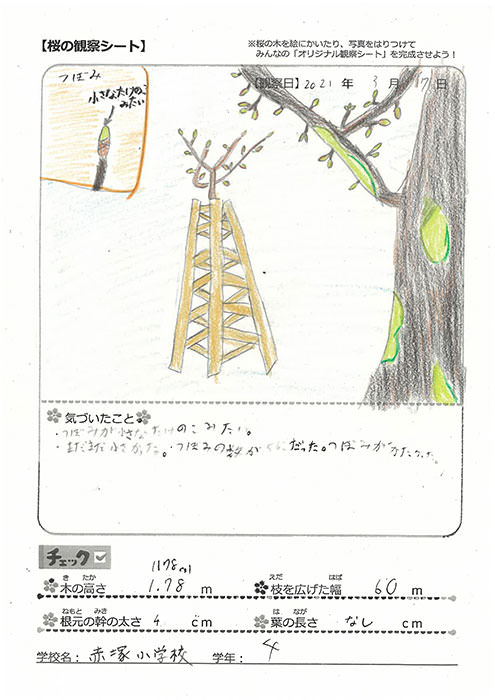 【桜の観察シート】
※桜の木を絵にかいたり、写真をはりつけて
みんなの「オリジナル観察シート」を完成させよう！
【観察日】2021 年 3 月 17 日
つぼみ
小さなたけのこ
みたい
気づいたこと
・つぼみが小さなたけのこみたい。
・まだまだ小さかった。・つぼみの数が だった。つぼみがかたかった。
チェック
1178cm
木の高さ 1.78 m
き たか
枝を広げた幅 60 m
えだ ひろ はば
根元の幹の太さ 4 cm
ねもと みき
葉の長さ なし cm
は なが
学校名： 赤塚小学校 学年： 4